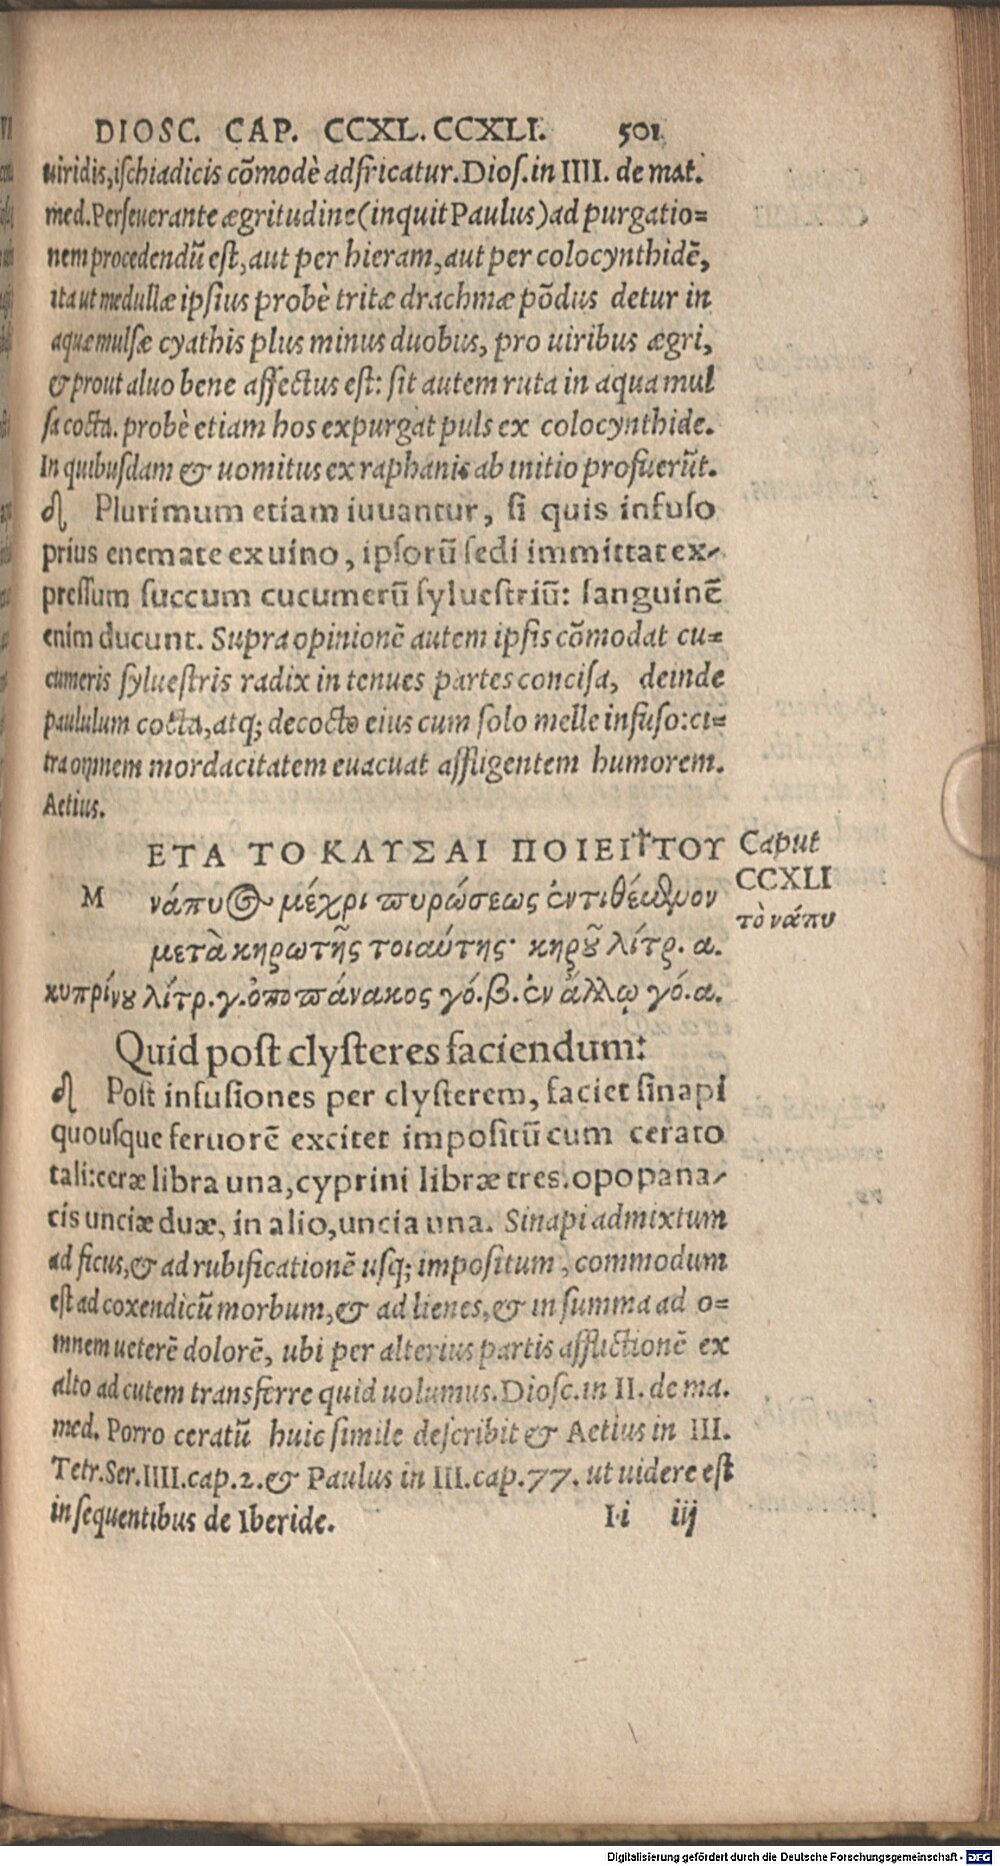 DIOSC. CAP. CCXL. CCXLI. 501
uiridis, ischiadicis cõmodè adfricatur. Dios. in IIII. de mat.
med. Perseuerante ægritudine (inquit Paulus) ad purgatio=
nem procedendũ est, aut per hieram, aut per colocynthidẽ,
ita ut medullæ ipsius probè tritæ drachmæ põdus detur in
aquæ mulsæ cyathis plus minus duobus, pro uiribus ægri,
& prout aluo bene affectus est: sit autem ruta in aqua mul
sa cocta. probè etiam hos expurgat puls ex colocynthide.
In quibusdam & uomitus ex raphanis ab initio profuerũt.
Plurimum etiam iuuantur, si quis infuso
prius enemate ex uino, ipsorũ sedi immittat ex-
pressum succum cucumerũ syluestriũ: sanguinẽ
enim ducunt. Supra opinionẽ autem ipsis cõmodat cu=
cumeris syluestris radix in tenues partes concisa, deinde
paululum cocta, atq; decocto eius cum solo melle infuso: ci=
tra omnem mordacitatem euacuat affligentem humorem.
Aetius.
ΕΤΑ ΤΟ ΚΛΥΣΑΙ ΠΟΙΕΙ† ΤΟΥ Caput
CCXLI
Μ νάπυος μέχρι πυρώσεως ἐντιθέμθμον τὸ νάπυ
μετὰ κηρωτῆς τοιαύτης· κηροῦ λίτρ. α.
κυπρίνου λίτρ. γ. ὀποπάνακος γό. β. ἐν ἄλλῳ γό. α.
Quid post clysteres faciendum:
Post infusiones per clysterem, faciet sinapi
quousque feruorẽ excitet impositũ cum cerato
tali: ceræ libra una, cyprini libræ tres. opopana-
cis unciæ duæ, in alio, uncia una. Sinapi admixtum
ad ficus, & ad rubificationẽ usq; impositum, commodum
est ad coxendicũ morbum, & ad lienes, & in summa ad o=
mnem ueterẽ dolorẽ, ubi per alterius partis afflictionẽ ex
alto ad cutem transferre quid uolumus. Diosc. in II. de ma.
med. Porro ceratũ huic simile describit & Aetius in III.
Tetr. Ser. IIII. cap. 2. & Paulus in III. cap. 77. ut uidere est
in sequentibus de Iberide. I·i iij
Digitalisierung gefördert durch die Deutsche Forschungsgemeinschaft - DFG